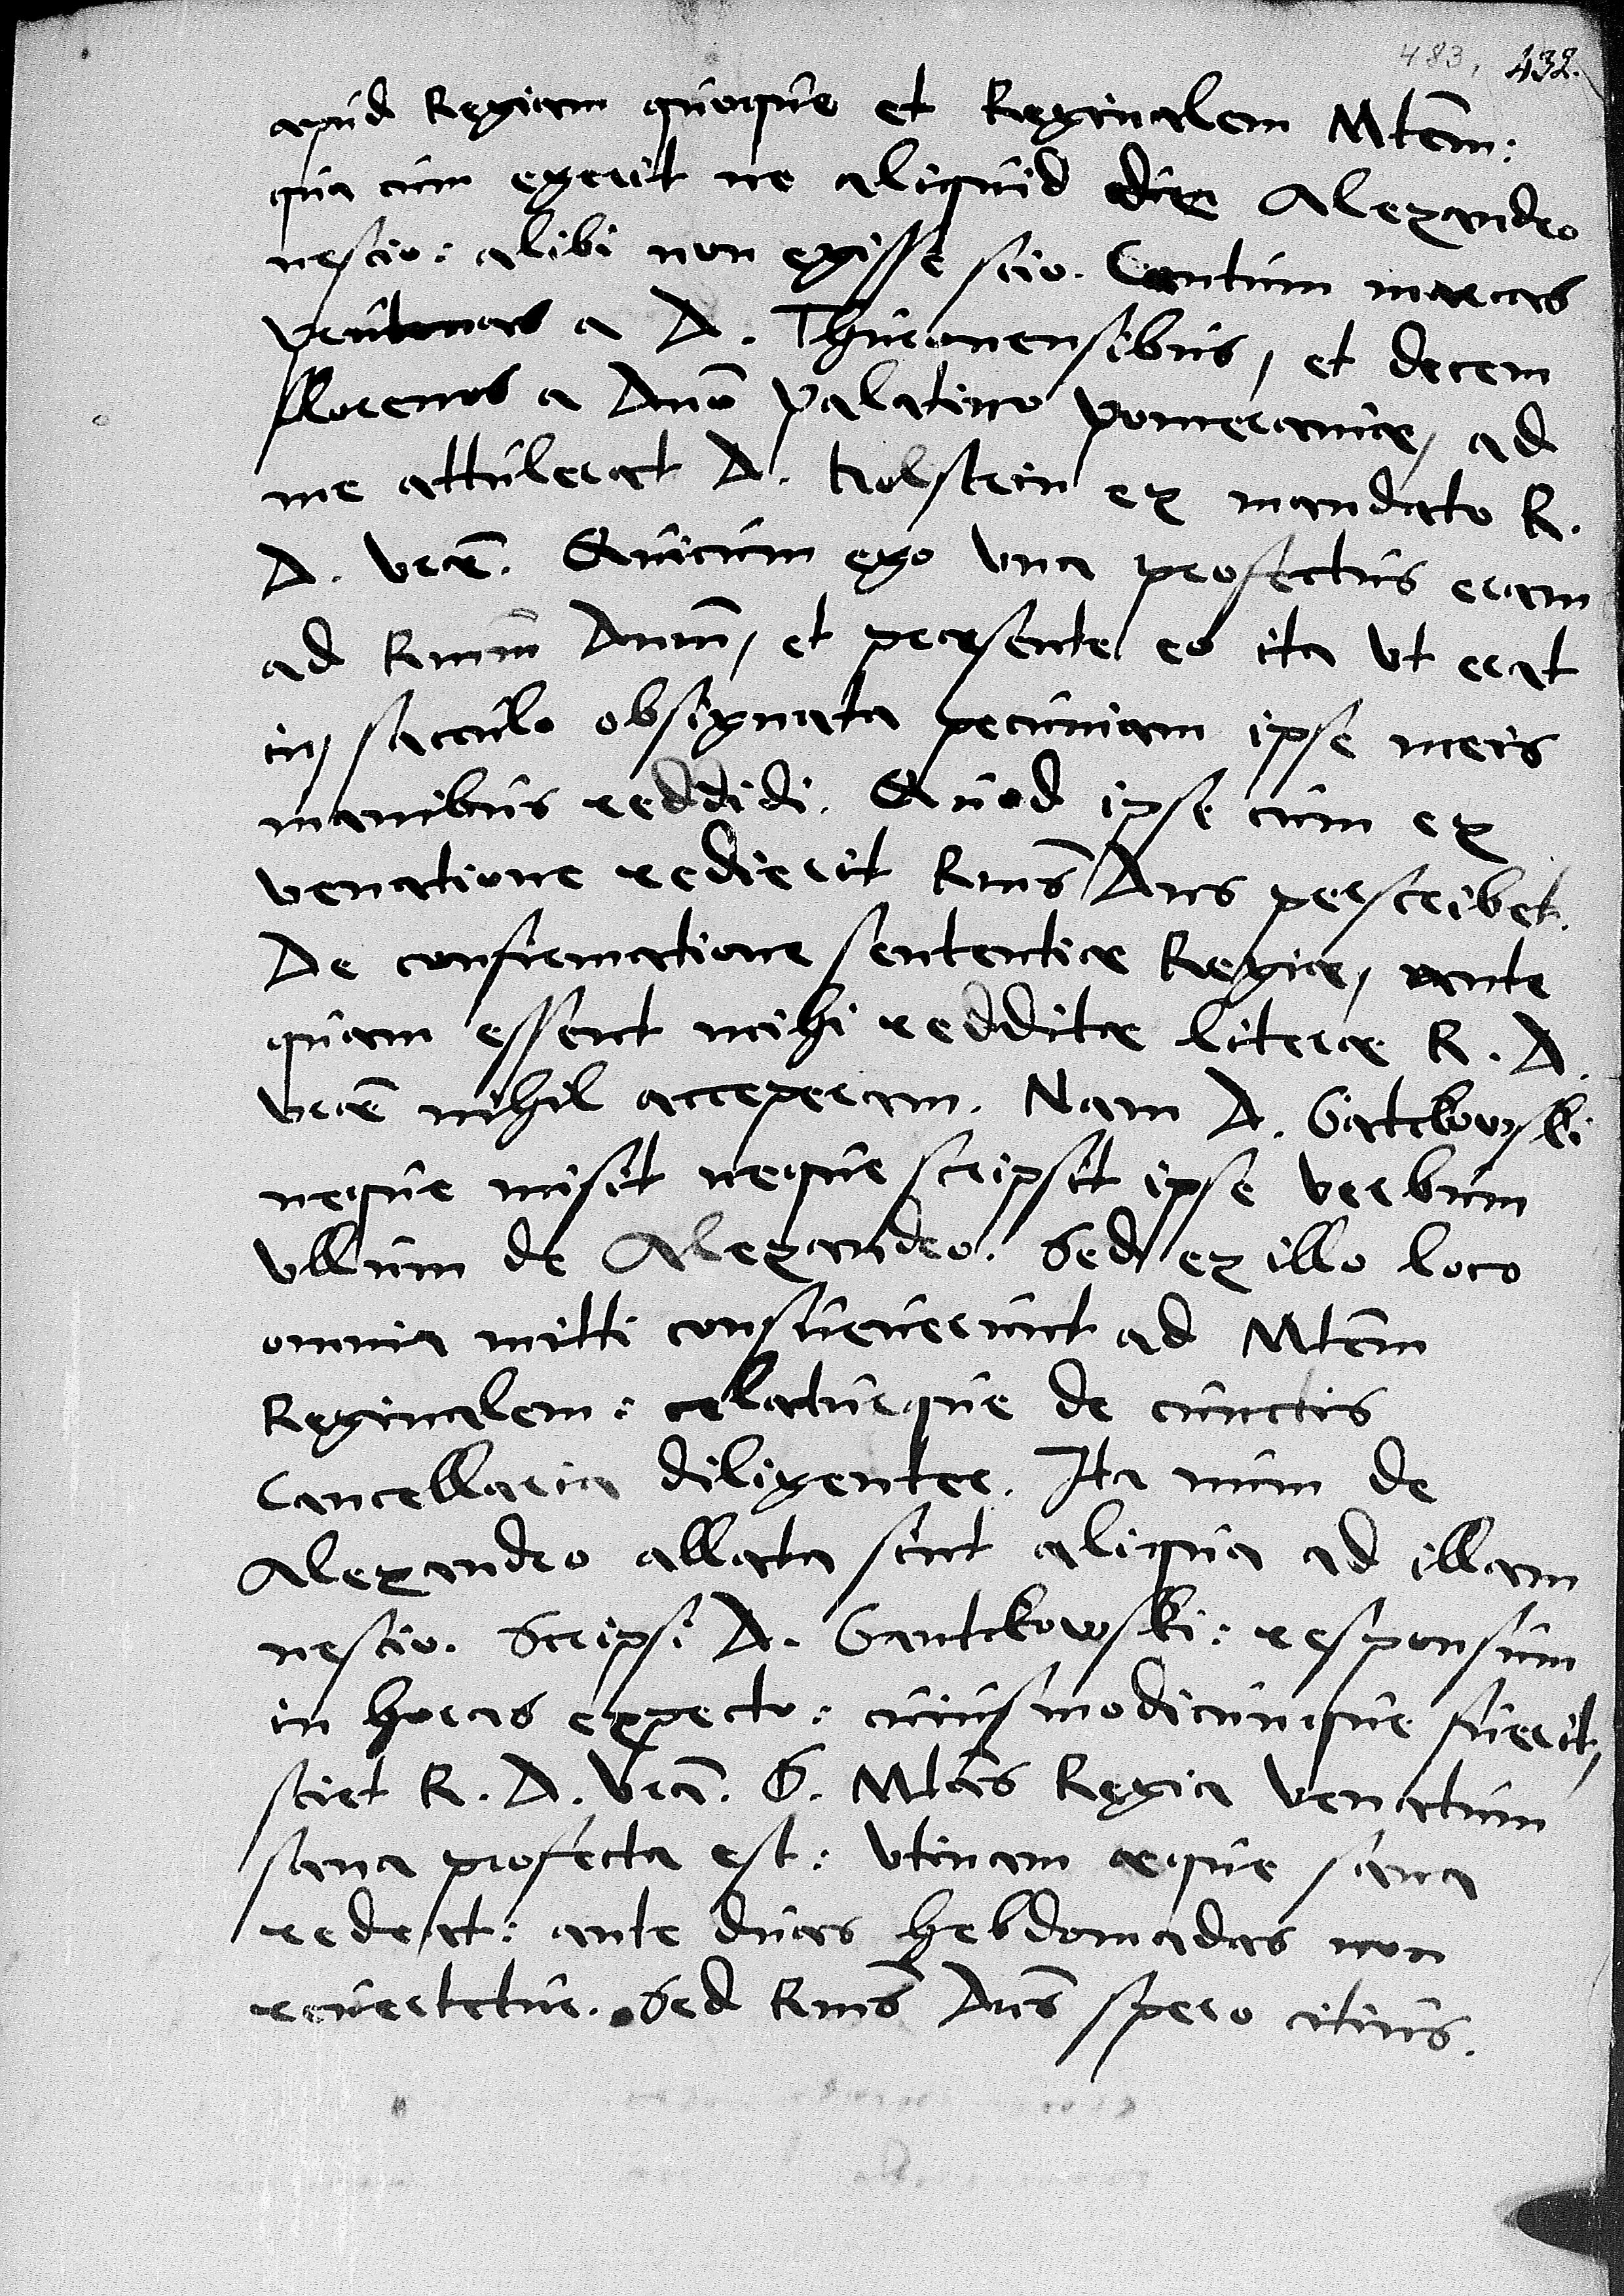 483, 432.
apud Regiam quoque et Reginalem Mtem̄:
qua cum egerit ne aliquid de Alexandro
nescio: alibi non egisse scio. Centum marcas
prutenas a D. Thuronensibus, et decem
florenos a Dno̅ palatino pomeraniae, ad
me attulerat D. Holstein ex mandato R.
D. vrae̅. Quicum ego una profectus eram
ad Rmum̅ Dnum̅, et praesente eo ita ut erat
in sacculo obsignata pecuniam ipse meis
manibus reddidi. Quod ipse cum ex
venatione redierit Rmus̅ Dns perscribet.
De confirmatione sententiae Regiae, ante
quam essent mihi redditae literae R. D.
vrae̅ nihil acceperam. Nam D. Gatckowski
neque misit neque scripsit ipse verbum
ullum de Alexandro. Sed ex illo loco
omnia mitti consueverunt ad Mtem̅
Reginalem: celaturque de cunctis
Cancellaria diligenter. Ita num de
Alexandro allata sint aliqua ad illam
nescio. Scripsi D. Gantckowski: responsum
in horas expecto: cuiusmodicunque fuerit,
sciet R. D. Vra̅. S. Mtas̅ Regia venatum
sana profecta est: utinam aeque sana
redeat: ante duas hebdomadas non
revertetur. Sed Rmus̅ Dns̅ spero citius.